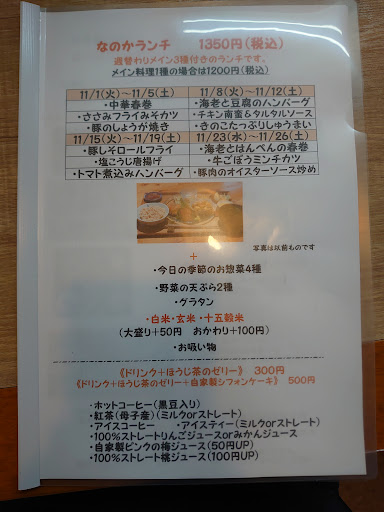 なのかランチ 1350円(税込)
週替わりメイン3種付きのランチです。
メイン料理1種の場合は1200円(税込)
11/1(火)～11/5(土) 11/8(火)～11/12(土)
・中華春巻 ・海老と豆腐のハンバーグ
・ささみフライみそカツ ・チキン南蛮&タルタルソース
・豚のしょうが焼き ・きのこたっぷりしゅうまい
11/15(火)～11/19(土) 11/23(水)～11/26(土)
・豚しそロールフライ ・海老とはんぺんの春巻
・塩こうじ唐揚げ ・牛ごぼうミンチカツ
・トマト煮込みハンバーグ ・豚肉のオイスターソース炒め
写真は以前ものです
+
・今日の季節のお惣菜4種
・野菜の天ぷら2種
・グラタン
・白米・玄米・十五穀米
(大盛り+50円 おかわり+100円)
・お吸い物
《ドリンク+ほうじ茶のゼリー》 300円
《ドリンク+ほうじ茶のゼリー+自家製シフォンケーキ》 500円
・ホットコーヒー(黒豆入り)
・紅茶(母子産)(ミルクorストレート)
・アイスコーヒー ・アイスティー(ミルクorストレート)
・100%ストレートりんごジュースorみかんジュース
・自家製ピンクの梅ジュース(50円UP)
・100%ストレート桃ジュース(100円UP)